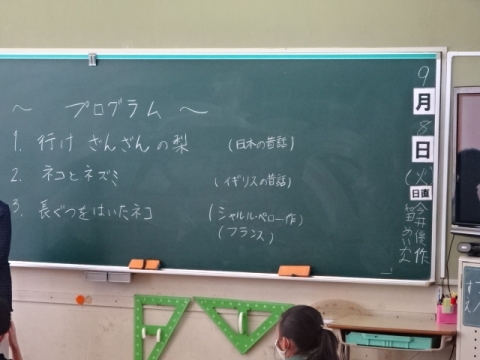 ～ プログラム ～
1. 行け ざんざんの梨 (日本の昔話)
2. ネコとネズミ (イギリスの昔話)
3. 長ぐつをはいたネコ (シャルル・ペロー作)
(フランス)
9月8日(火)
日直
今井優作